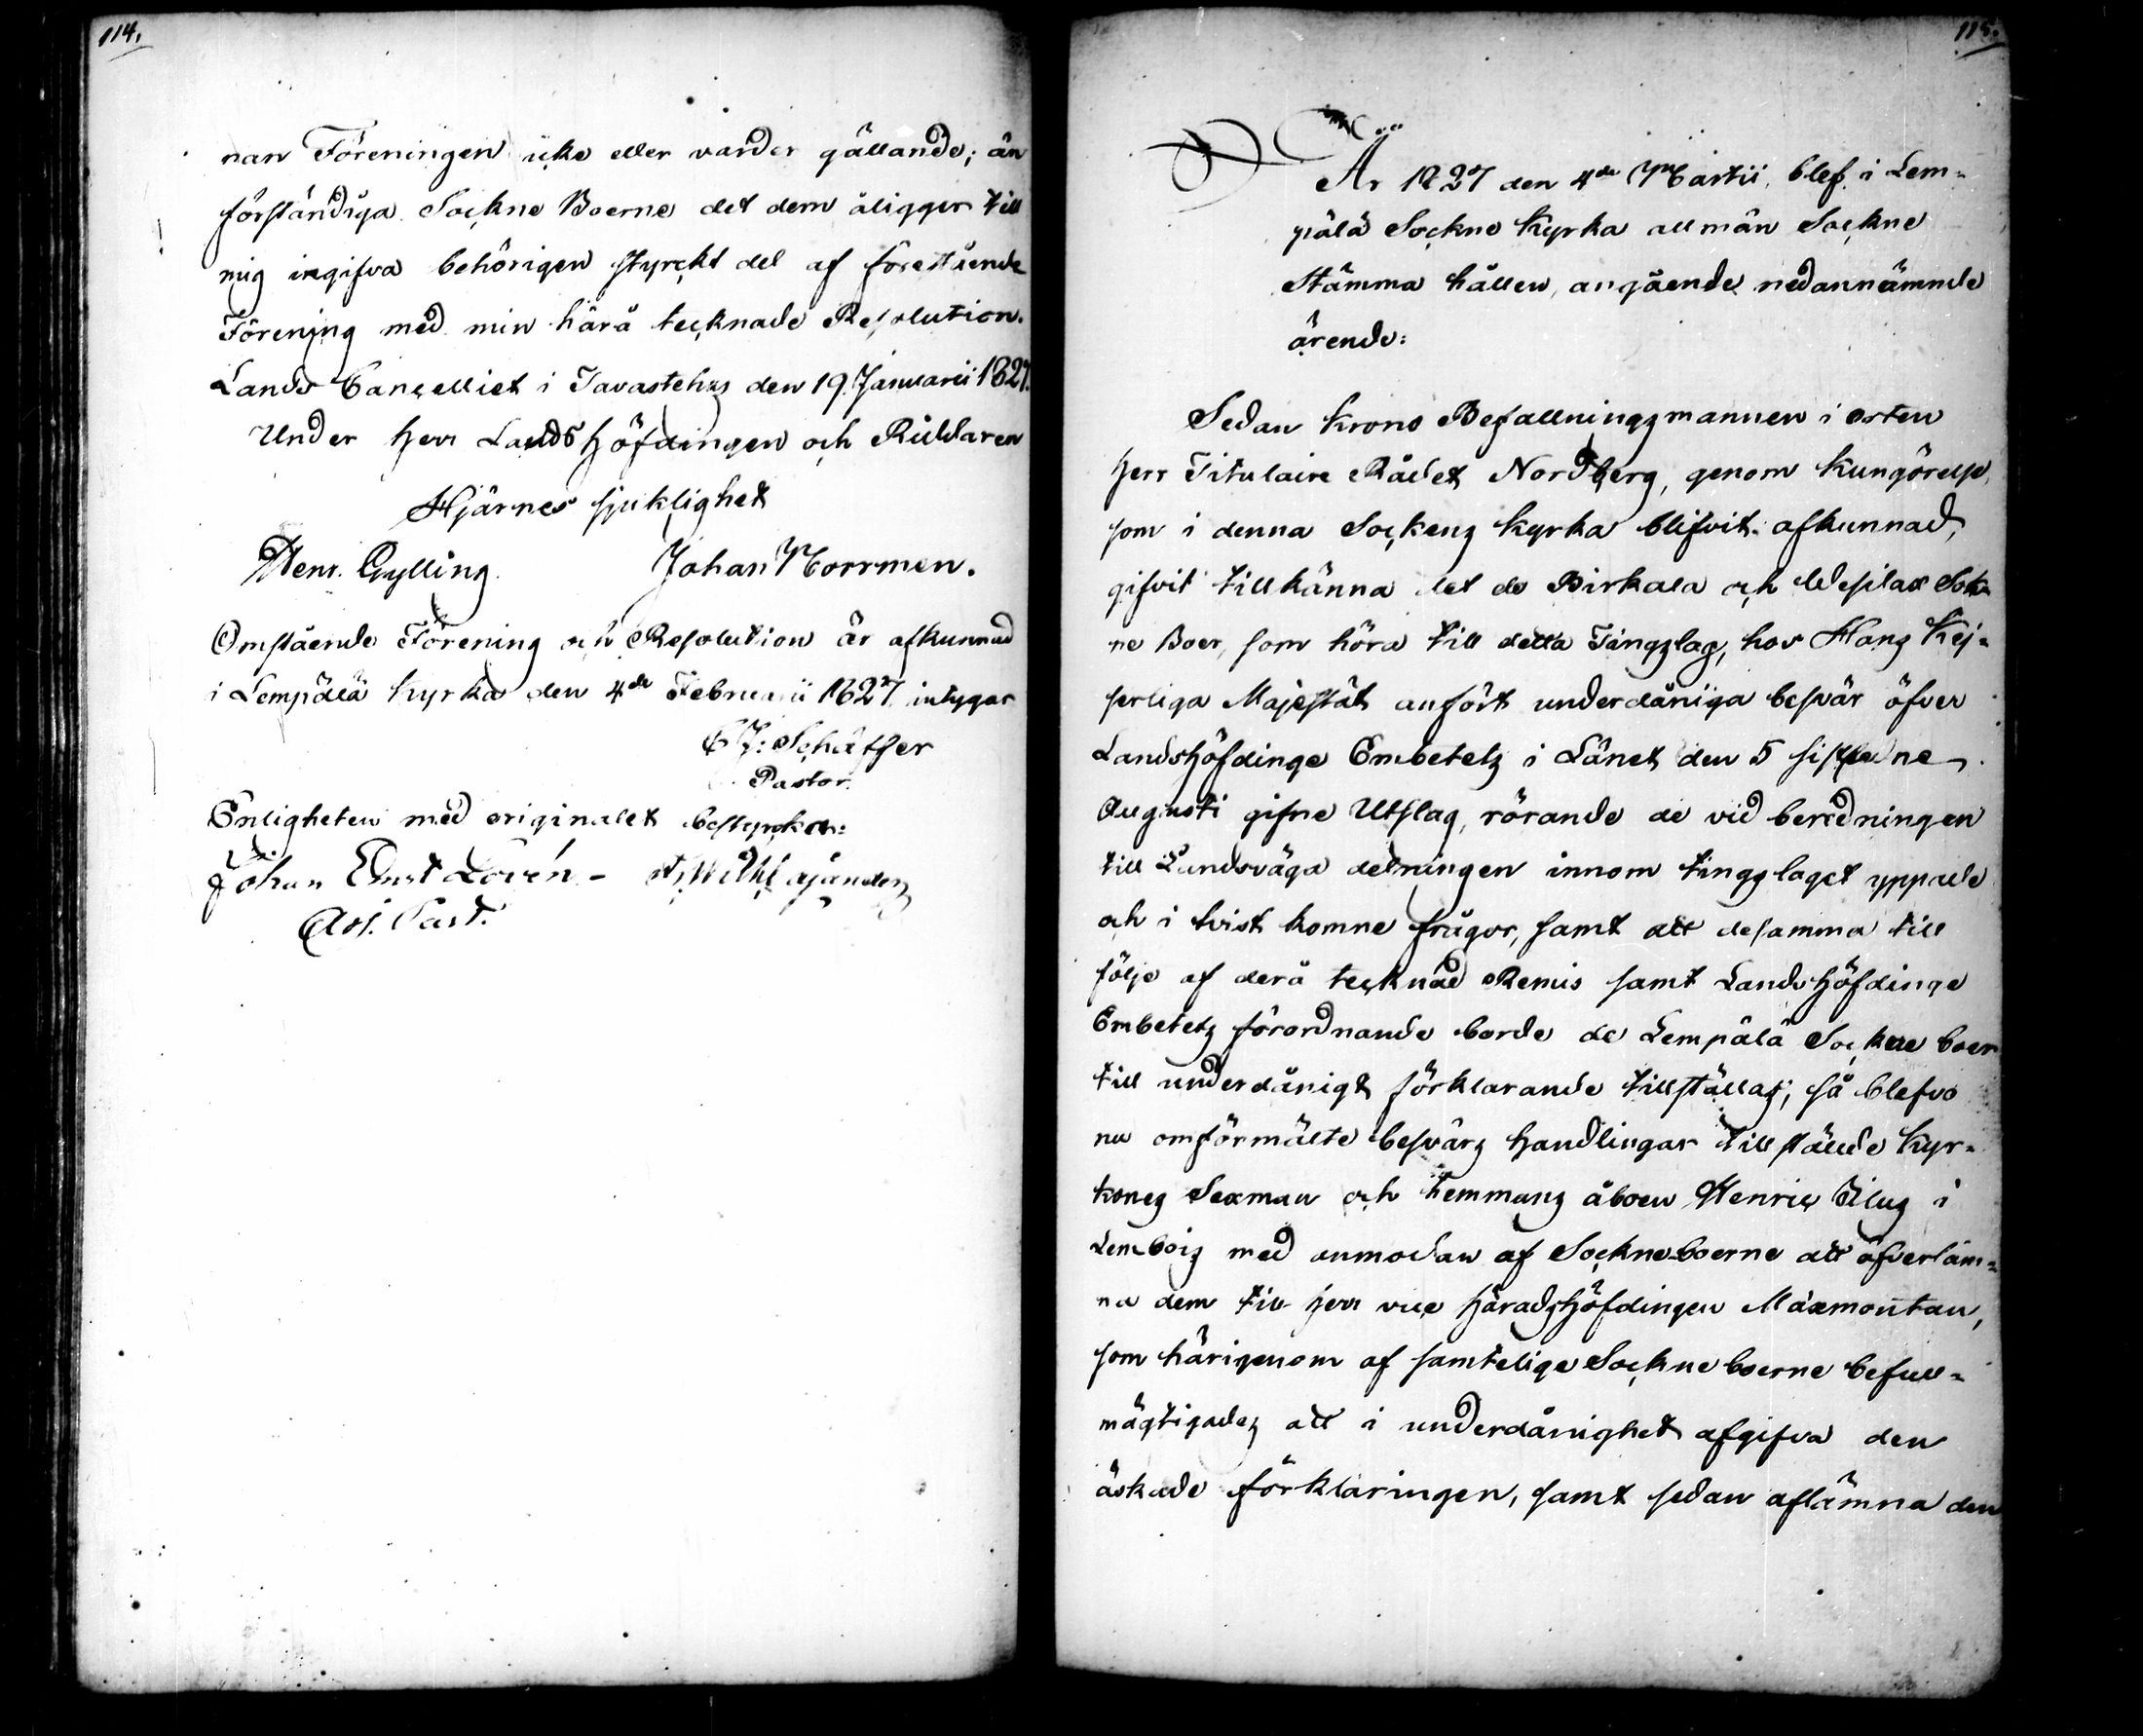 114.
nan Föreningen icke eller varder gällande; än
förständiga Sockne Boerne det dem åligger till
mig ingifva behörigen styrckt del af förestående
Förening med min härå tecknade Resolution.
Lands Cancelliet i Tavastehus den 19 Januarii 1827.
Under Herr Landshöfdingen och Riddaren
Hjärnes sjuklighet
Henr. Gylling. Johan Morrmen.
Omstående Förening och Resolution är afkunnad
i Lempälä kyrka den 4de Februarii 1827 intygar
C J: Schäffer
Pastor.
Enligheten med originalet bestyrcka:
Johan Ernst Lovén -
Adj. Past.
115.
År 1827 den 4de Martii, blef i Lem=
pälä Sockne kyrka allmän Sockne
Stämma hållen, angående nedannämnde
ärende:
Sedan krono Befallningsmannen i orten
Herr Titulaire Rådet Nordberg, genom kungörelse,
som i denna Sockens kyrka blifvit afkunnad,
gifvit tillkänna det de Birkala och Wesilax Sok
ne Boer, som höra till detta Tingslag, hos Hans Kej=
serliga Majestät anfört underdåniga besvär öfver
Landshöfdinge Embetets i Länet den 5 sistledne
Augusti gifne Utslag, rörande de vid beredningen
till Landsväga delningen innom tingslaget yppade
och i tvist komne frågor, samt att desamma till
följe af derå tecknad Remis samt Landshöfdinge
Embetets förordnande borde de Lempälä Sockne boer
till underdånigt förklarande tillställas; så blefvo
nu omförmälte besvärs handlingar tillstälde kyr=
kones Sexman och hemmans åboen Henric Filus i
Lembois med anmodan af Sockneboerne att öfverläm=
na dem till Herr vice Häradshöfdingen Maxmontan,
som härigenom af samtelige Sockne boerne befull=
mägtigades att i underdånighet afgifva den
äskade förklaringen, samt sedan aflämna den